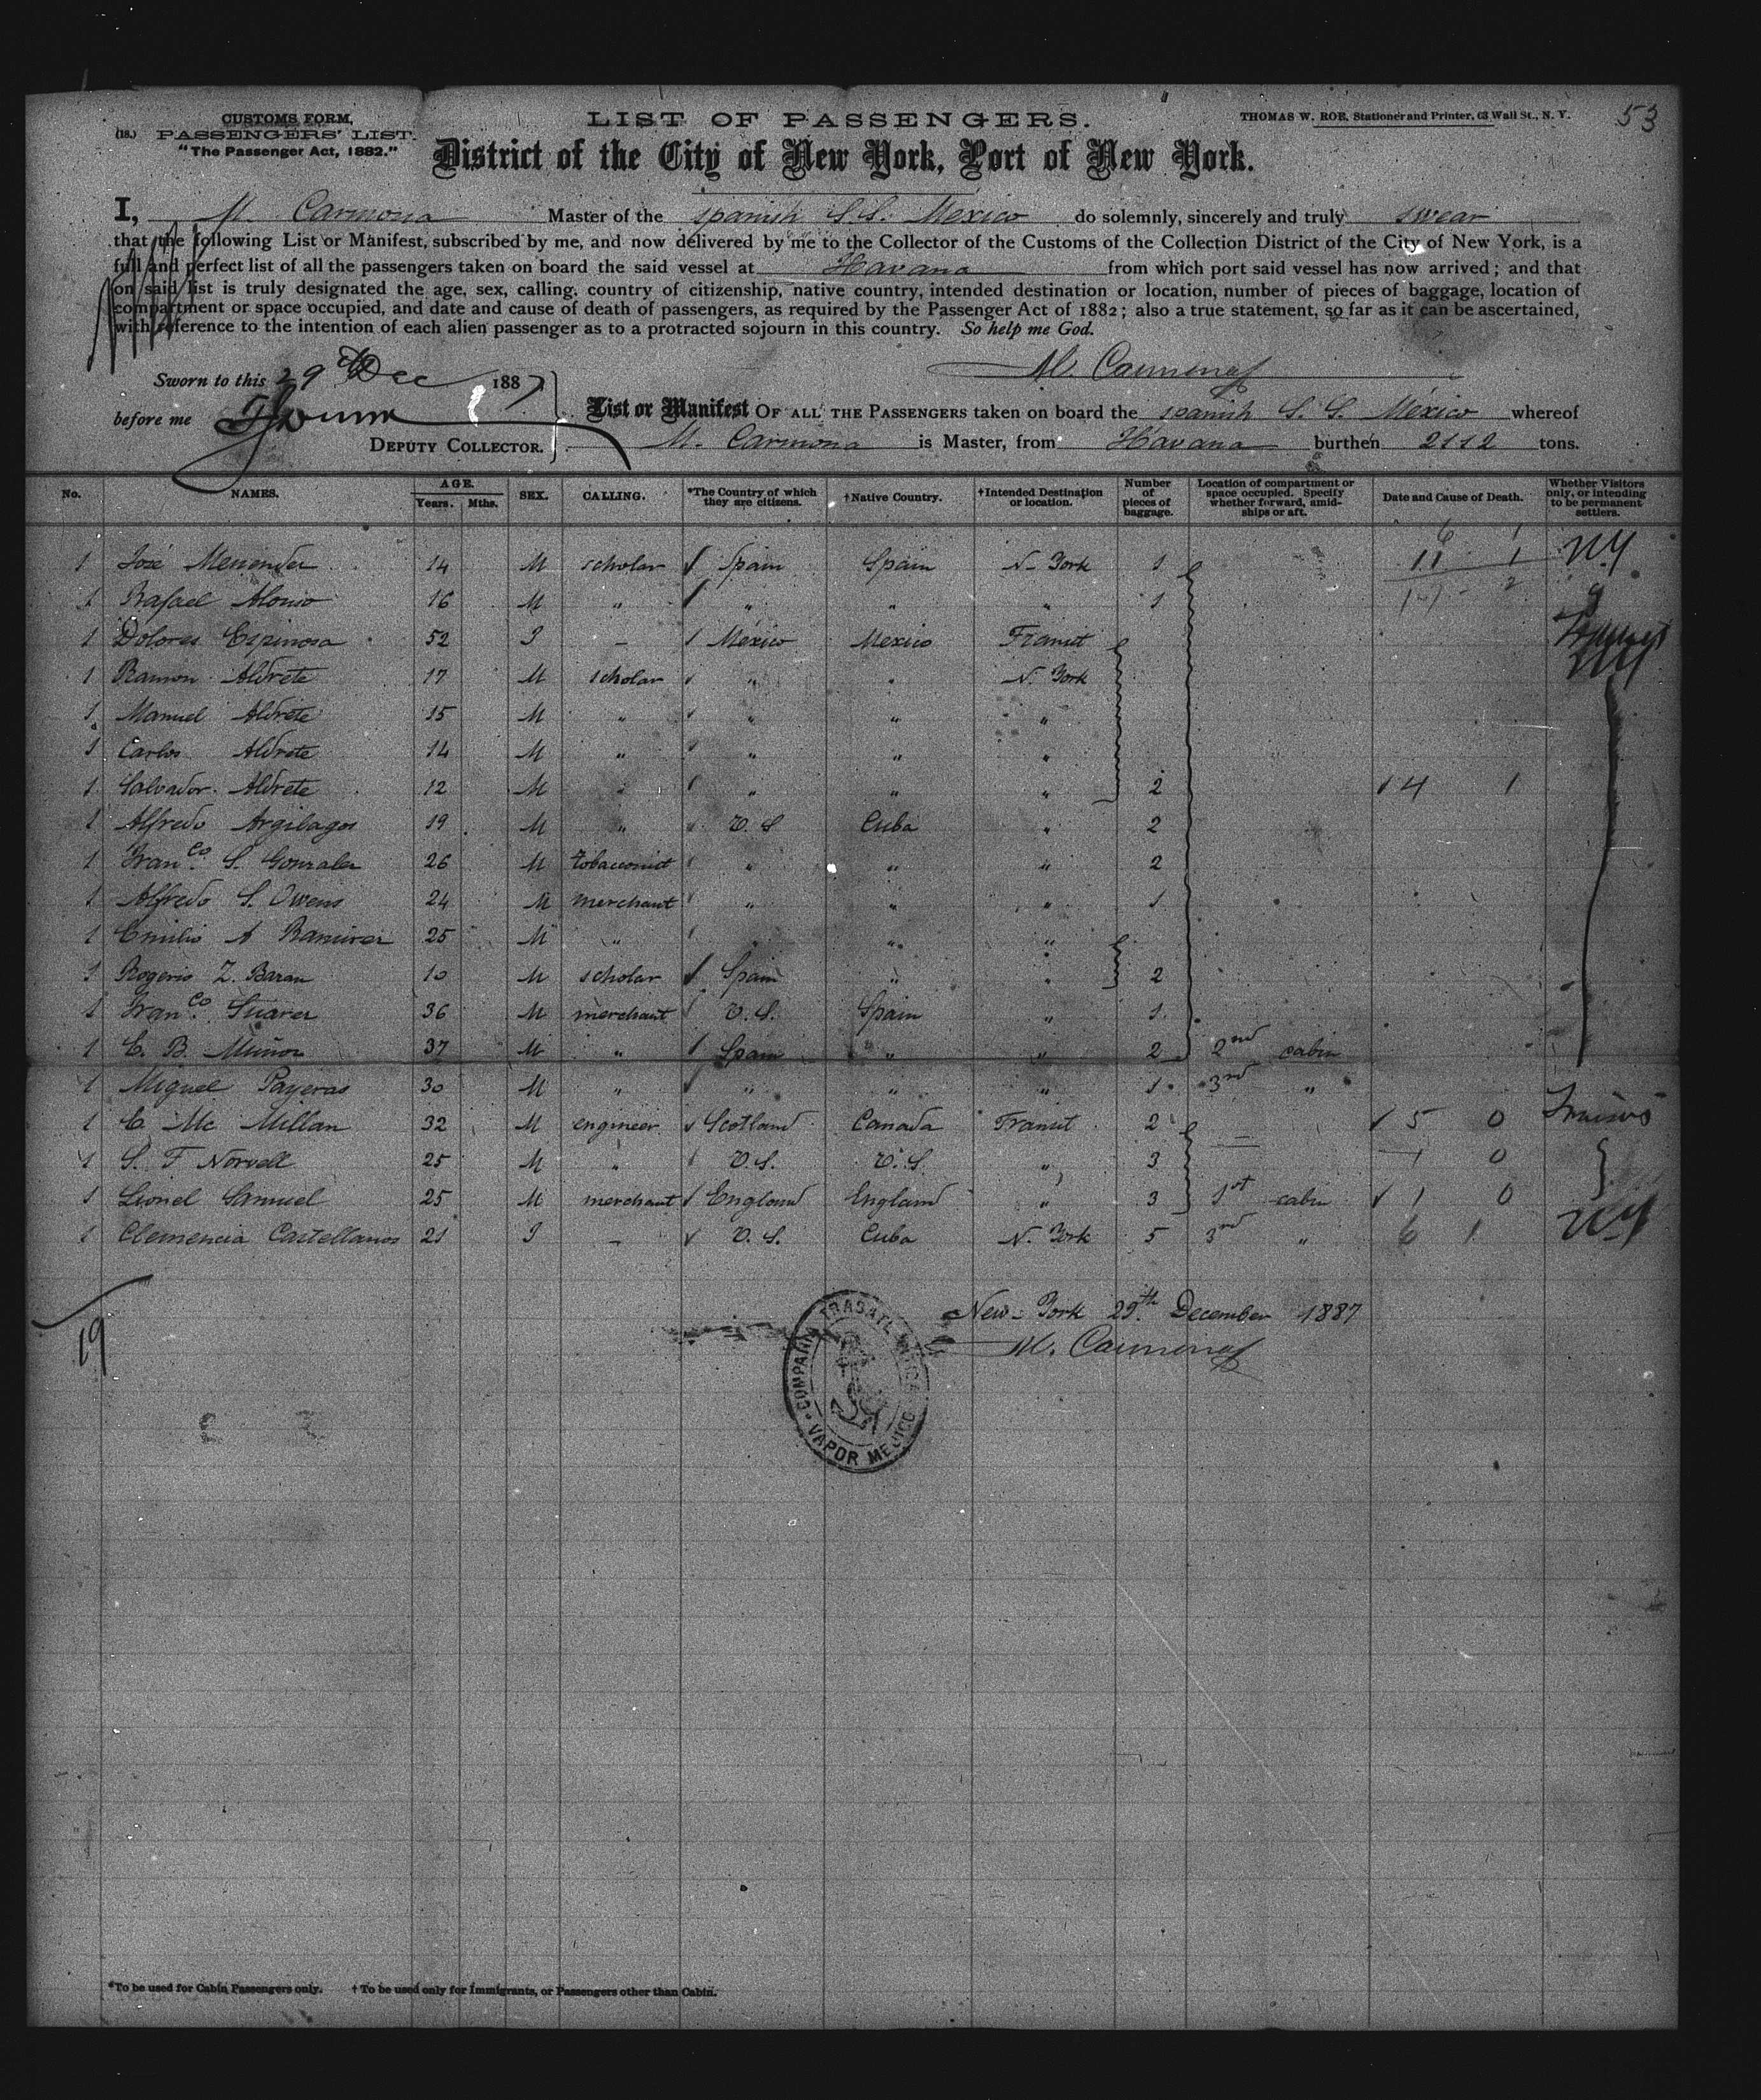 53
CUSTOMS FORM,
(18.) PASSENGERS' LIST.
"The Passenger Act, 1882."
LIST OF PASSENGERS.
THOMAS W. ROE, Stationer and Printer, 63 Wall St., N. Y.
District of the City of New York, Port of New York.
I, M. Carmona Master of the spanish S.S. Mexico do solemnly, sincerely and truly swear
that the following List or Manifest, subscribed by me, and now delivered by me to the Collector of the Customs of the Collection District of the City of New York, is a
full and perfect list of all the passengers taken on board the said vessel at Havana from which port said vessel has now arrived; and that
on said list is truly designated the age, sex, calling, country of citizenship, native country, intended destination or location, number of pieces of baggage, location of
compartment or space occupied, and date and cause of death of passengers, as required by the Passenger Act of 1882; also a true statement, so far as it can be ascertained,
with reference to the intention of each alien passenger as to a protracted sojourn in this country. So help me God.
M. Carmona
Sworn to this 29th Dec 1887
before me
DEPUTY COLLECTOR.
List or Manifest OF ALL THE PASSENGERS taken on board the spanish S. S. Mexico whereof
M. Carmona is Master, from Havana burthen 2112 tons.
No. NAMES. AGE. Years. Mths. SEX. CALLING. *The Country of which they are citizens. †Native Country. †Intended Destination or location. Number of pieces of baggage. Location of compartment or space occupied. Specify whether forward, amidships or aft. Date and Cause of Death. Whether Visitors only, or intending to be permanent settlers.
1 José Menendez 14 M scholar Spain Spain N. York 1 11 1 NY
1 Rafael Alonso 16 M " " " " 1
1 Dolores Espinosa 52 F — Mexico Mexico Transit
1 Ramon Aldrete 17 M scholar " " N. York NY
1 Manuel Aldrete 15 M " " " "
1 Carlos Aldrete 14 M " " " "
1 Salvador Aldrete 12 M " " " " 2 4 1
1 Alfredo Argilagos 19 M " U. S Cuba " 2
1 Franco. S. Gonzalez 26 M tobacconist " " " 2
1 Alfredo S. Owens 24 M merchant " " " 1
1 Emilio A Ramirez 25 M " " " "
1 Rogerio Z. Bazan 10 M scholar Spain " " 2
1 Franco. Suarez 36 M merchant U. S. Spain " 1
1 C. B. Muñoz 37 M " Spain " " 2 2nd cabin
1 Miguel Payeras 30 M " " " " 1 3rd "
1 C. Mc Millan 32 M engineer Scotland Canada Transit 2 — 5 0 Transit
1 S. F Norvell 25 M " U. S. U. S. " 3 1 0
1 Lionel Samuel 25 M merchant England England " 3 1st cabin 1 0
1 Clemencia Castellanos 21 F — U. S. Cuba N. York 5 3rd " 6 1 NY
19
New-York 29th. December 1887
M. Carmona
COMPAÑIA TRASATLANTICA
VAPOR MEJICO
*To be used for Cabin Passengers only. †To be used only for Immigrants, or Passengers other than Cabin.